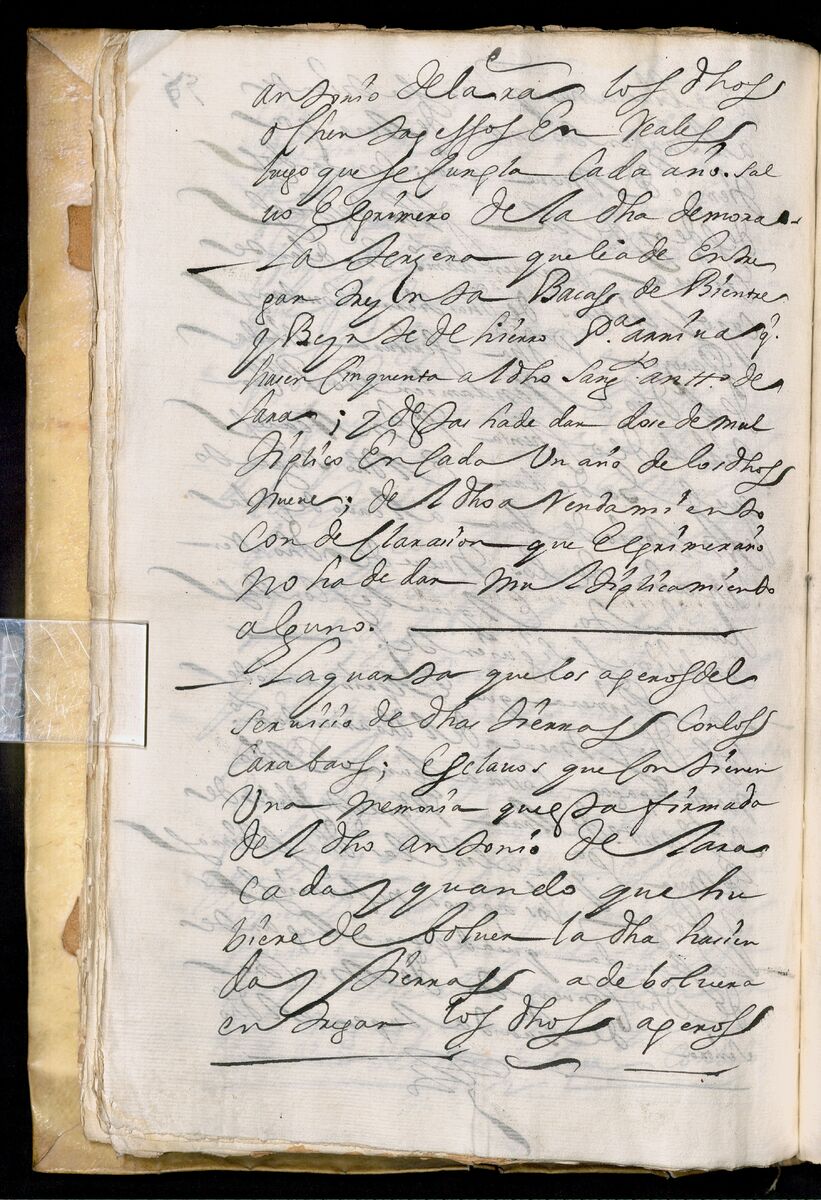 antonio de lara los dhos
ochen ta pessos En Reales
luego que se Cunpla Cada año. sal
uo El primero de la dha demora
La tersera que lia de Entre
gar treynta Bacas de Bientre
y Beynte de hierro Pa. arriua q.
hasen Cinquenta al dho sargto. antto. de
lara; y destas ha de dar dose de mul
tiplico En Cada Un año de los dhos
nueue; del dho a Rendamiento
Con de Clarasion que El primer año
no ha de dar mul tiplicamiento
alguno.
La quarta que los aperos del
seruicio de dhas tierras Con los
Carabaos; Esclauos que Contienen
Una memoria questa firmada
del dho antonio de lara
cada y quando que hu
biere de boluer la dha hasien
da y tierras a de boluer a
en tregar los dhos aperos